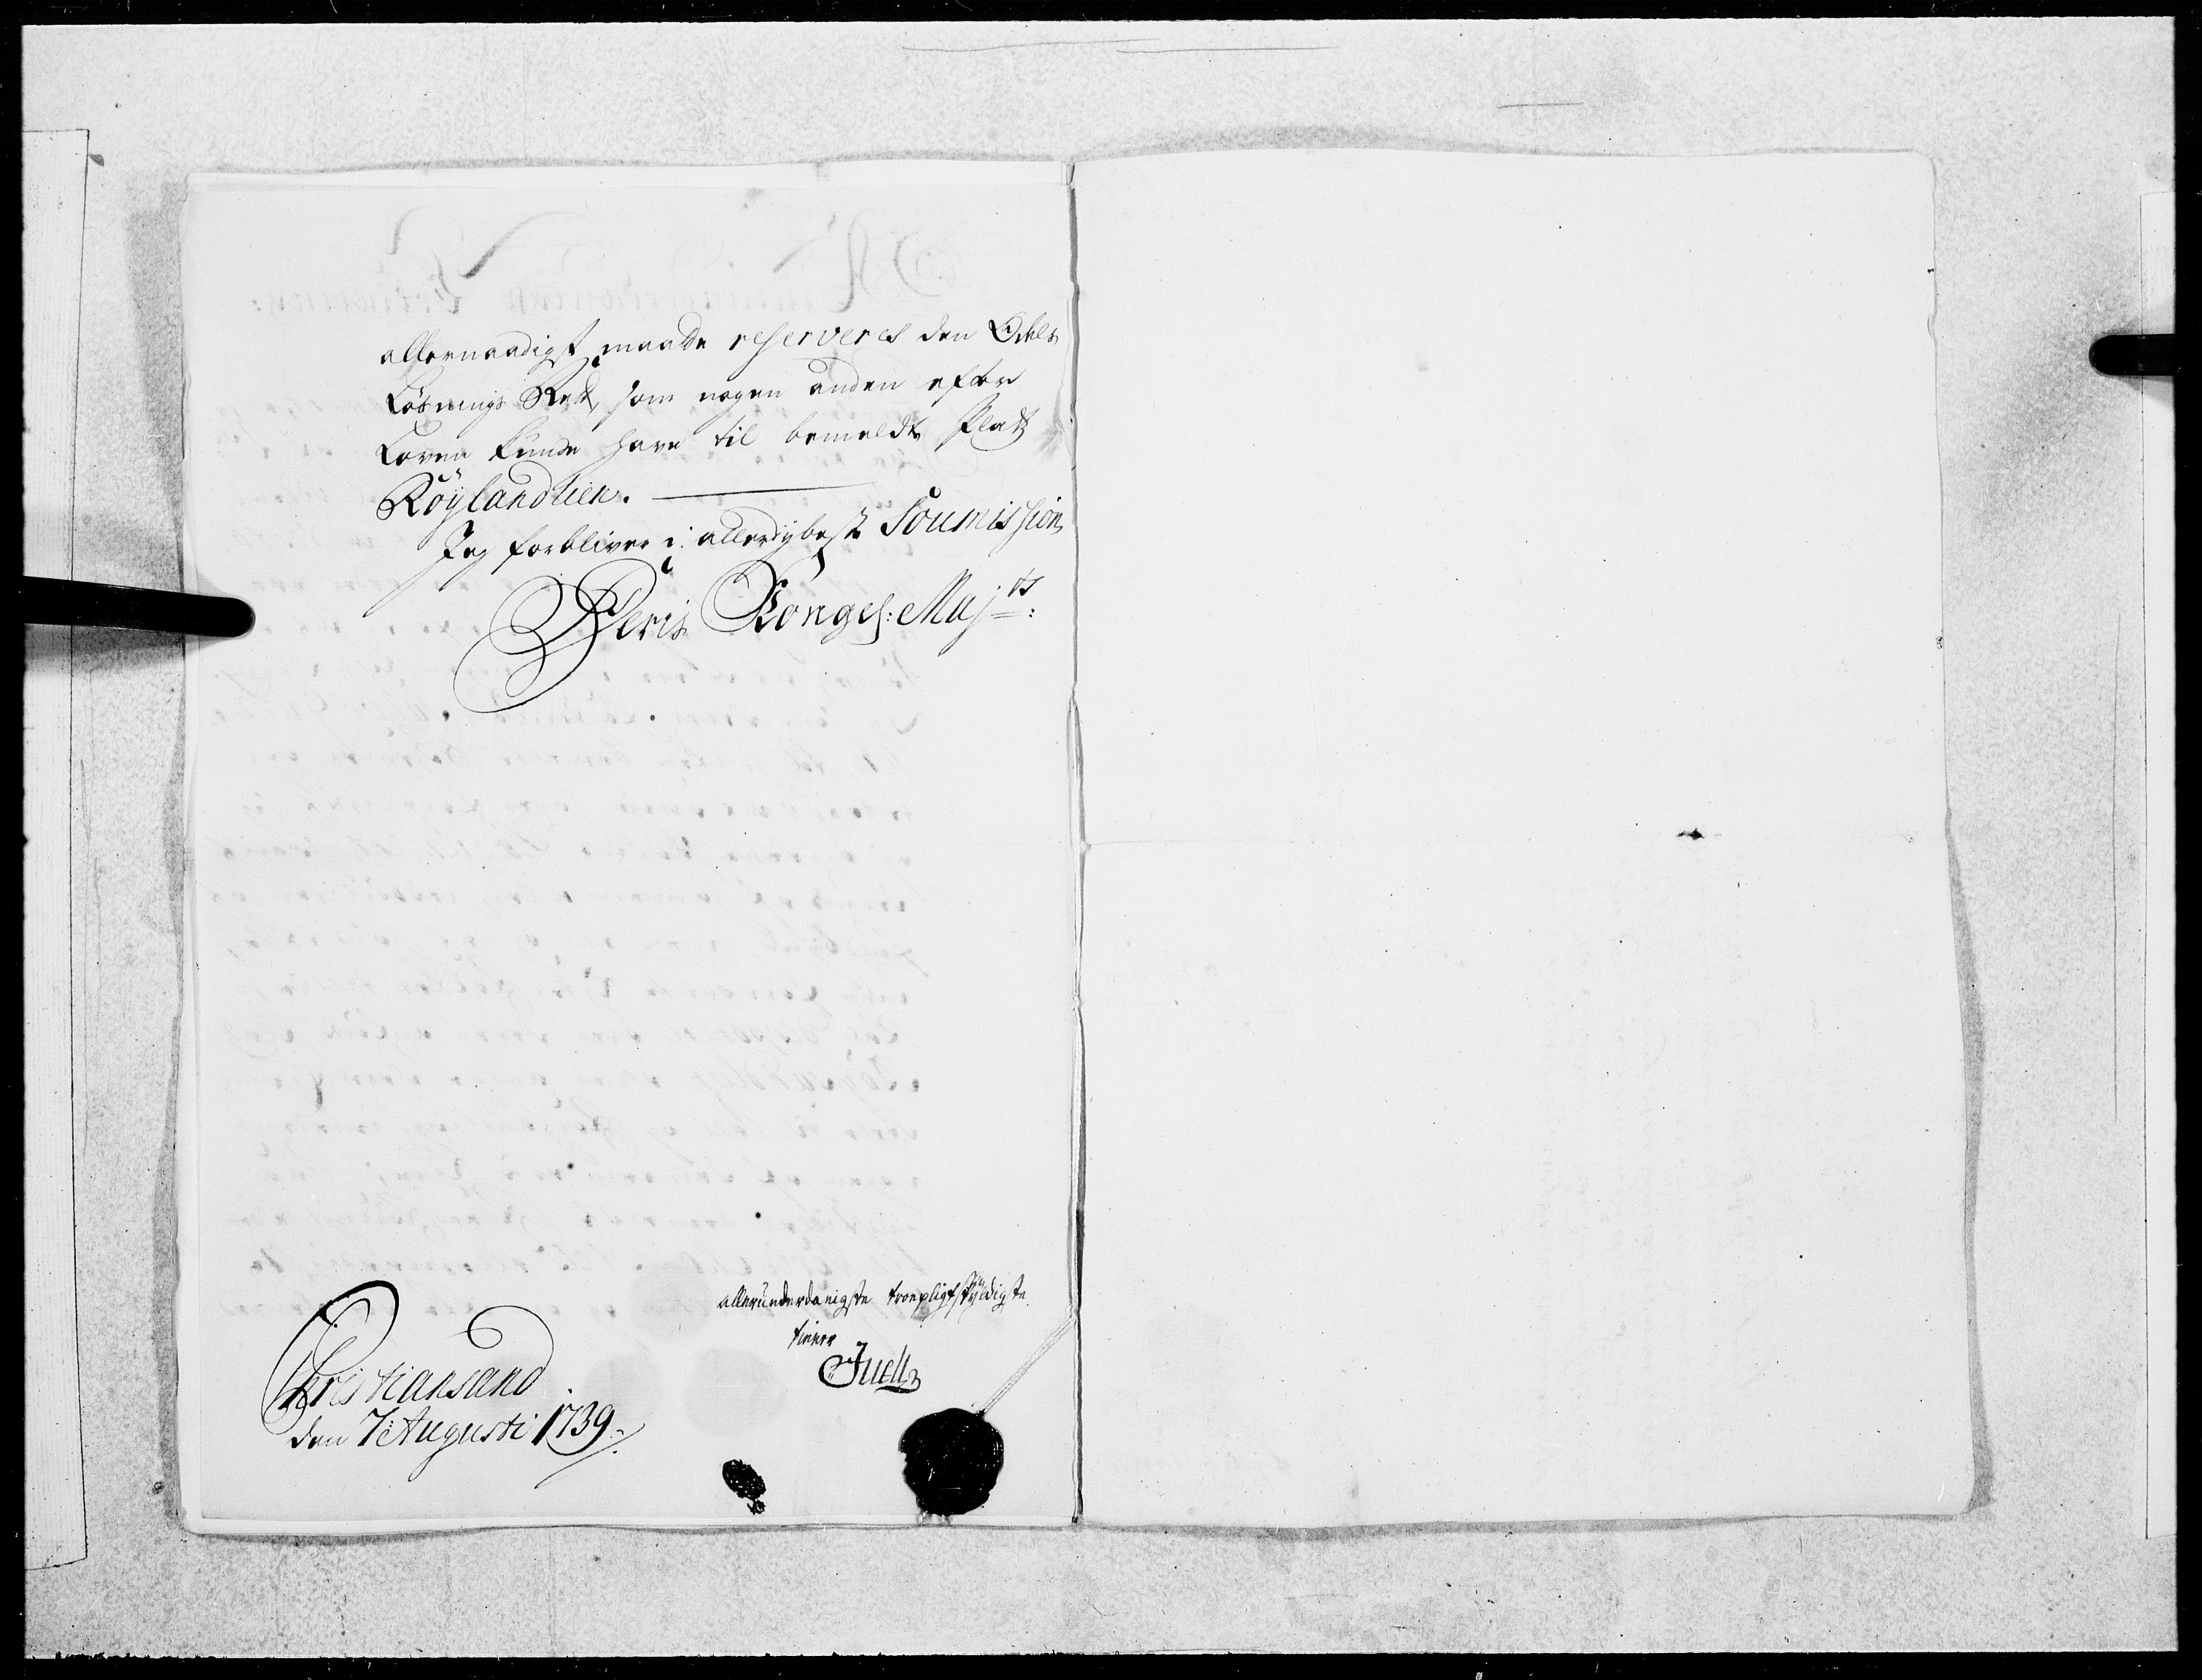 allernaadigst maatte reserveres den Odels
Løsnings Rett, som nogen anden efter
Loven kunde have til bemeldte Platz
Röylandlien.
Jeg forbliver i allerdybeste Soumission
Deris Kongel: Majts:
allerunderdanigste troepligtskyldigste
tienere
Juell
Christiansand
den 7 Augusti 1739.